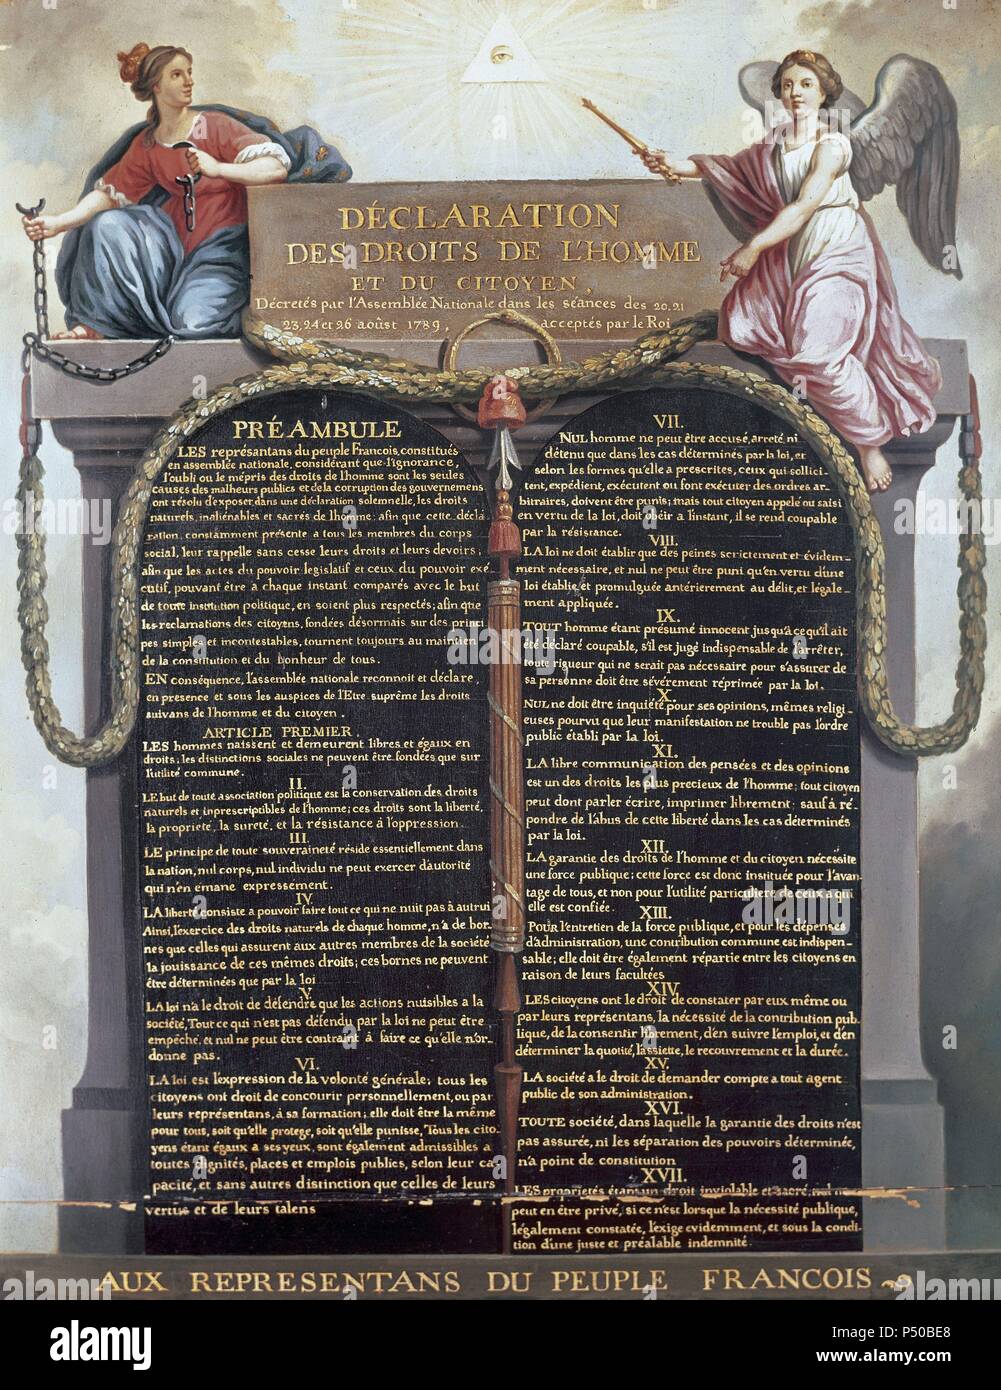 DÉCLARATION
DES DROITS DE L'HOMME
ET DU CITOYEN,
Décretés par l'Assemblée Nationale dans les séances des 20.21
23.24 et 26 aoûst 1789, acceptés par le Roi
PRÉAMBULE
LES représantans du peuple Francois, constitués
en assemblée nationale, considérant que l'ignorance,
l'oubli ou le mépris des droits de l'homme sont les seules
causes des malheurs publics et de la corruption des gouvernemens
ont résolu d'exposer, dans une déclaration solemnelle, les droits
naturels, inaliénables et sacrés de l'homme: afin que cette décla
ration, constamment présente a tous les membres du corps
social, leur rappelle sans cesse leurs droits et leurs devoirs,
afin que les actes du pouvoir legislatif et ceux du pouvoir exé
cutif, pouvant être à chaque instant comparés avec le but
de toute institution politique, en soient plus respectés; afin que
les reclamations des citoyens, fondées désormais sur des princi
pes simples et incontestables, tournent toujours au maintien
de la constitution et du bonheur de tous.
EN conséquence, l'assemblée nationale reconnoit et déclare,
en presence et sous les auspices de l'Etre suprême les droits
suivans de l'homme et du citoyen.
ARTICLE PREMIER.
LES hommes naissent et demeurent libres et égaux en
droits; les distinctions sociales ne peuvent être fondées que sur
l'utilité commune.
II.
LE but de toute association politique est la conservation des droits
naturels et inprescriptibles de l'homme; ces droits sont la liberté,
la proprieté, la sureté, et la résistance à l'oppression.
III.
LE principe de toute souveraineté réside essentiellement dans
la nation, nul corps, nul individu ne peut exercer d'autorité
qui n'en émane expressement.
IV.
LA liberté consiste a pouvoir faire tout ce qui ne nuit pas à autrui
Ainsi, l'exercice des droits naturels de chaque homme, n'a de bor-
nes que celles qui assurent aux autres membres de la société
la jouissance de ces mêmes droits; ces bornes ne peuvent
être déterminées que par la loi
V.
LA loi n'a le droit de défendre que les actions nuisibles a la
société, Tout ce qui n'est pas défendu par la loi ne peut être
empêché, et nul ne peut être contraint à faire ce qu'elle n'or-
donne pas.
VI.
LA loi est l'expression de la volonté générale; tous les
citoyens ont droit de concourir personnellement, ou par
leurs représentans, à sa formation; elle doit être la même
pour tous, soit qu'elle protege, soit qu'elle punisse, Tous les cito-
yens étant égaux a ses yeux, sont également admissibles a
toutes dignités, places et emplois publics, selon leur ca
pacité, et sans autres distinction que celles de leurs
vertus et de leurs talens
VII.
NUL homme ne peut être accusé, arreté ni
détenu que dans les cas déterminés par la loi, et
selon les formes qu'elle a prescrites, ceux qui sollici-
tent, expédient, exécutent ou font exécuter des ordres ar-
bitraires, doivent être punis; mais tout citoyen appelé ou saisi
en vertu de la loi, doit obéir a l'instant, il se rend coupable
par la résistance.
VIII.
LA loi ne doit établir que des peines strictement et évidem-
ment nécessaire, et nul ne peut être puni qu'en vertu d'une
loi établie et promulguée antérierement au délit, et légale-
ment appliquée.
IX.
TOUT homme étant présumé innocent jusqu'a ce qu'il ait
été déclaré coupable, s'il est jugé indispensable de l'arrêter,
toute rigueur qui ne serait pas nécessaire pour s'assurer de
sa personne doit être sévèrement réprimée par la loi.
X.
NUL ne doit être inquiété pour ses opinions, mêmes religi-
euses pourvu que leur manifestation ne trouble pas l'ordre
public établi par la loi.
XI.
LA libre communication des pensées et des opinions
est un des droits les plus precieux de l'homme; tout citoyen
peut dont parler écrire, imprimer librement; sauf à ré-
pondre de l'abus de cette liberté dans les cas déterminés
par la loi.
XII.
LA garantie des droits de l'homme et du citoyen nécessite
une force publique; cette force est donc instituée pour l'avan-
tage de tous, et non pour l'utilité particuliere de ceux a qui
elle est confiée.
XIII.
POUR l'entretien de la force publique, et pour les dépenses
d'administration, une contribution commune est indispen-
sable; elle doit être également répartie entre les citoyens en
raison de leurs facultées
XIV.
LES citoyens ont le droit de constater par eux même ou
par leurs représentans, la nécessité de la contribution pub_
lique, de la consentir librement, d'en suivre l'emploi, et d'en
déterminer la quotité, l'assiette, le recouvrement et la durée.
XV.
LA société a le droit de demander compte a tout agent
public de son administration.
XVI.
TOUTE société, dans laquelle la garantie des droits n'est
pas assurée, ni les séparation des pouvoirs déterminée,
n'a point de constitution
XVII.
LES proprietés étant un droit inviolable et sacré, nul ne
peut en être privé, si ce n'est lorsque la nécessité publique,
légalement constatée, l'exige evidemment, et sous la condi
tion d'une juste et préalable indemnité.
AUX REPRESENTANS DU PEUPLE FRANCOIS
alamy
alamy
alamy
Image ID: P50BE8
www.alamy.com